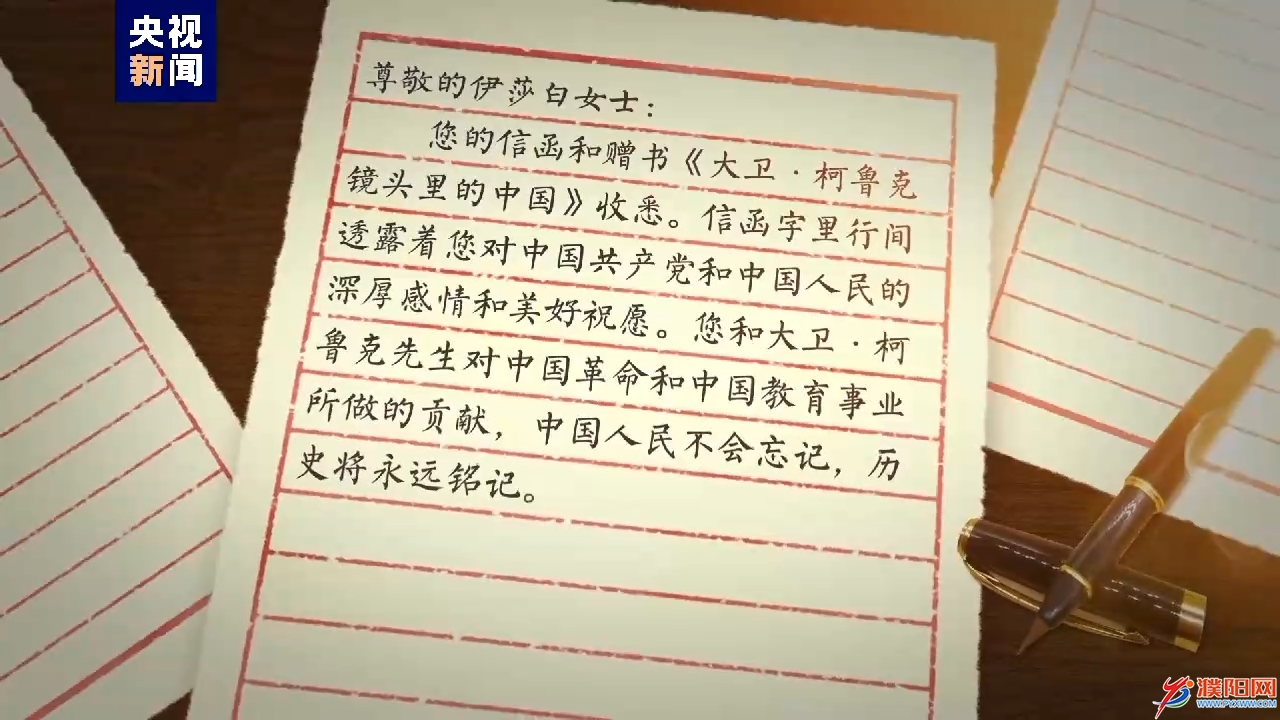 央视
新闻
尊敬的伊莎白女士：
您的信函和赠书《大卫·柯鲁克
镜头里的中国》收悉。信函字里行间
透露着您对中国共产党和中国人民的
深厚感情和美好祝愿。您和大卫·柯
鲁克先生对中国革命和中国教育事业
所做的贡献，中国人民不会忘记，历
史将永远铭记。
濮阳网
WWW.PYXWW.COM